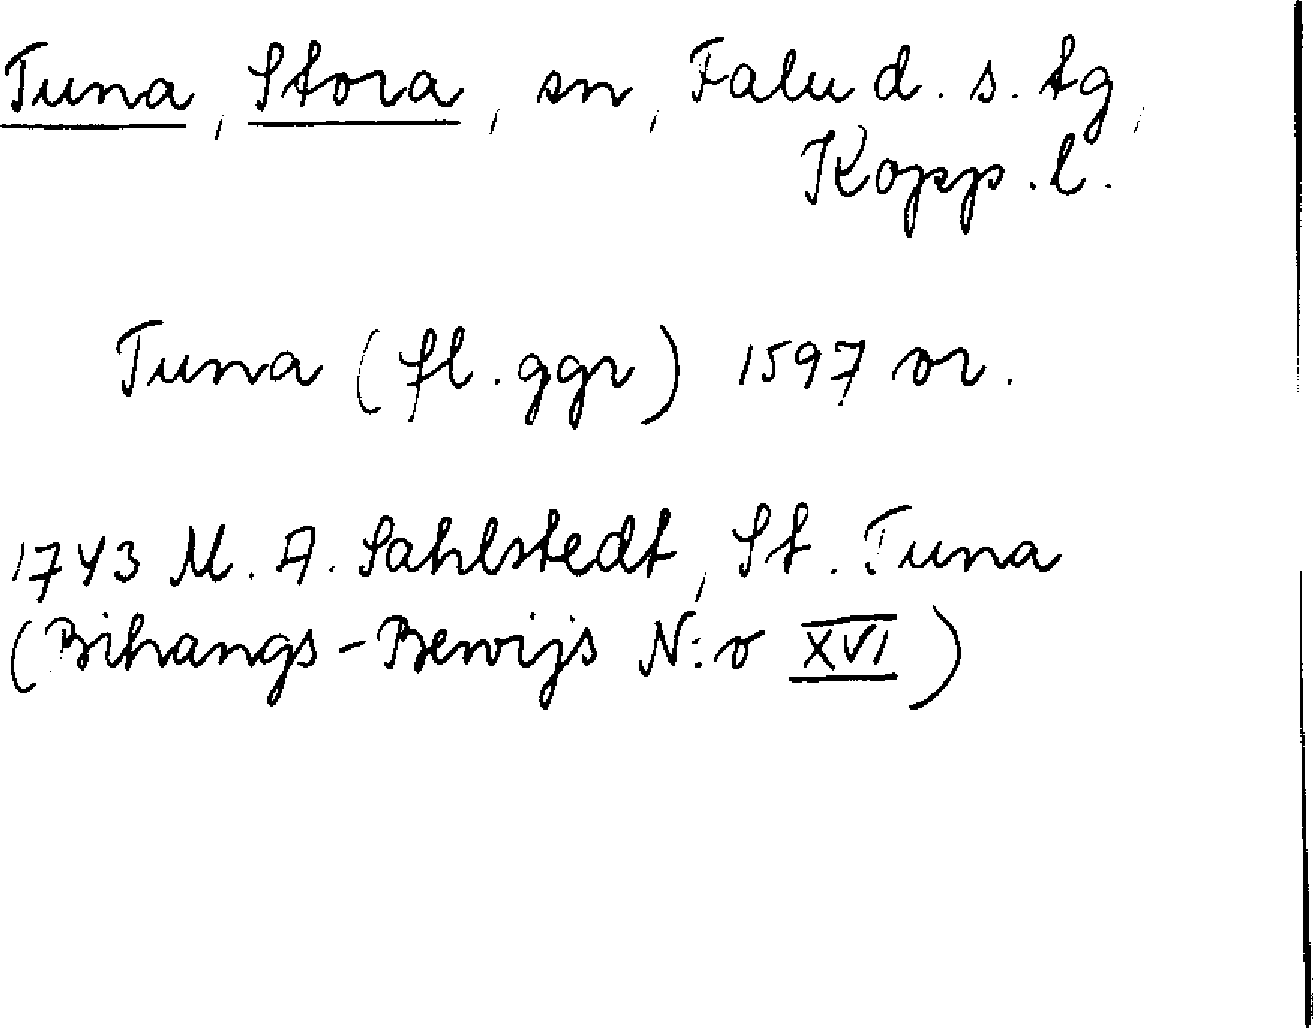 Tuna, Stora, sn, Falu d. s. tg,
Kopp. l.
Tuna (fl. ggr) 1597 or.
1743 M. A. Sahlstedt, St. Tuna
(Bihangs-Bewijs N:o XVI)